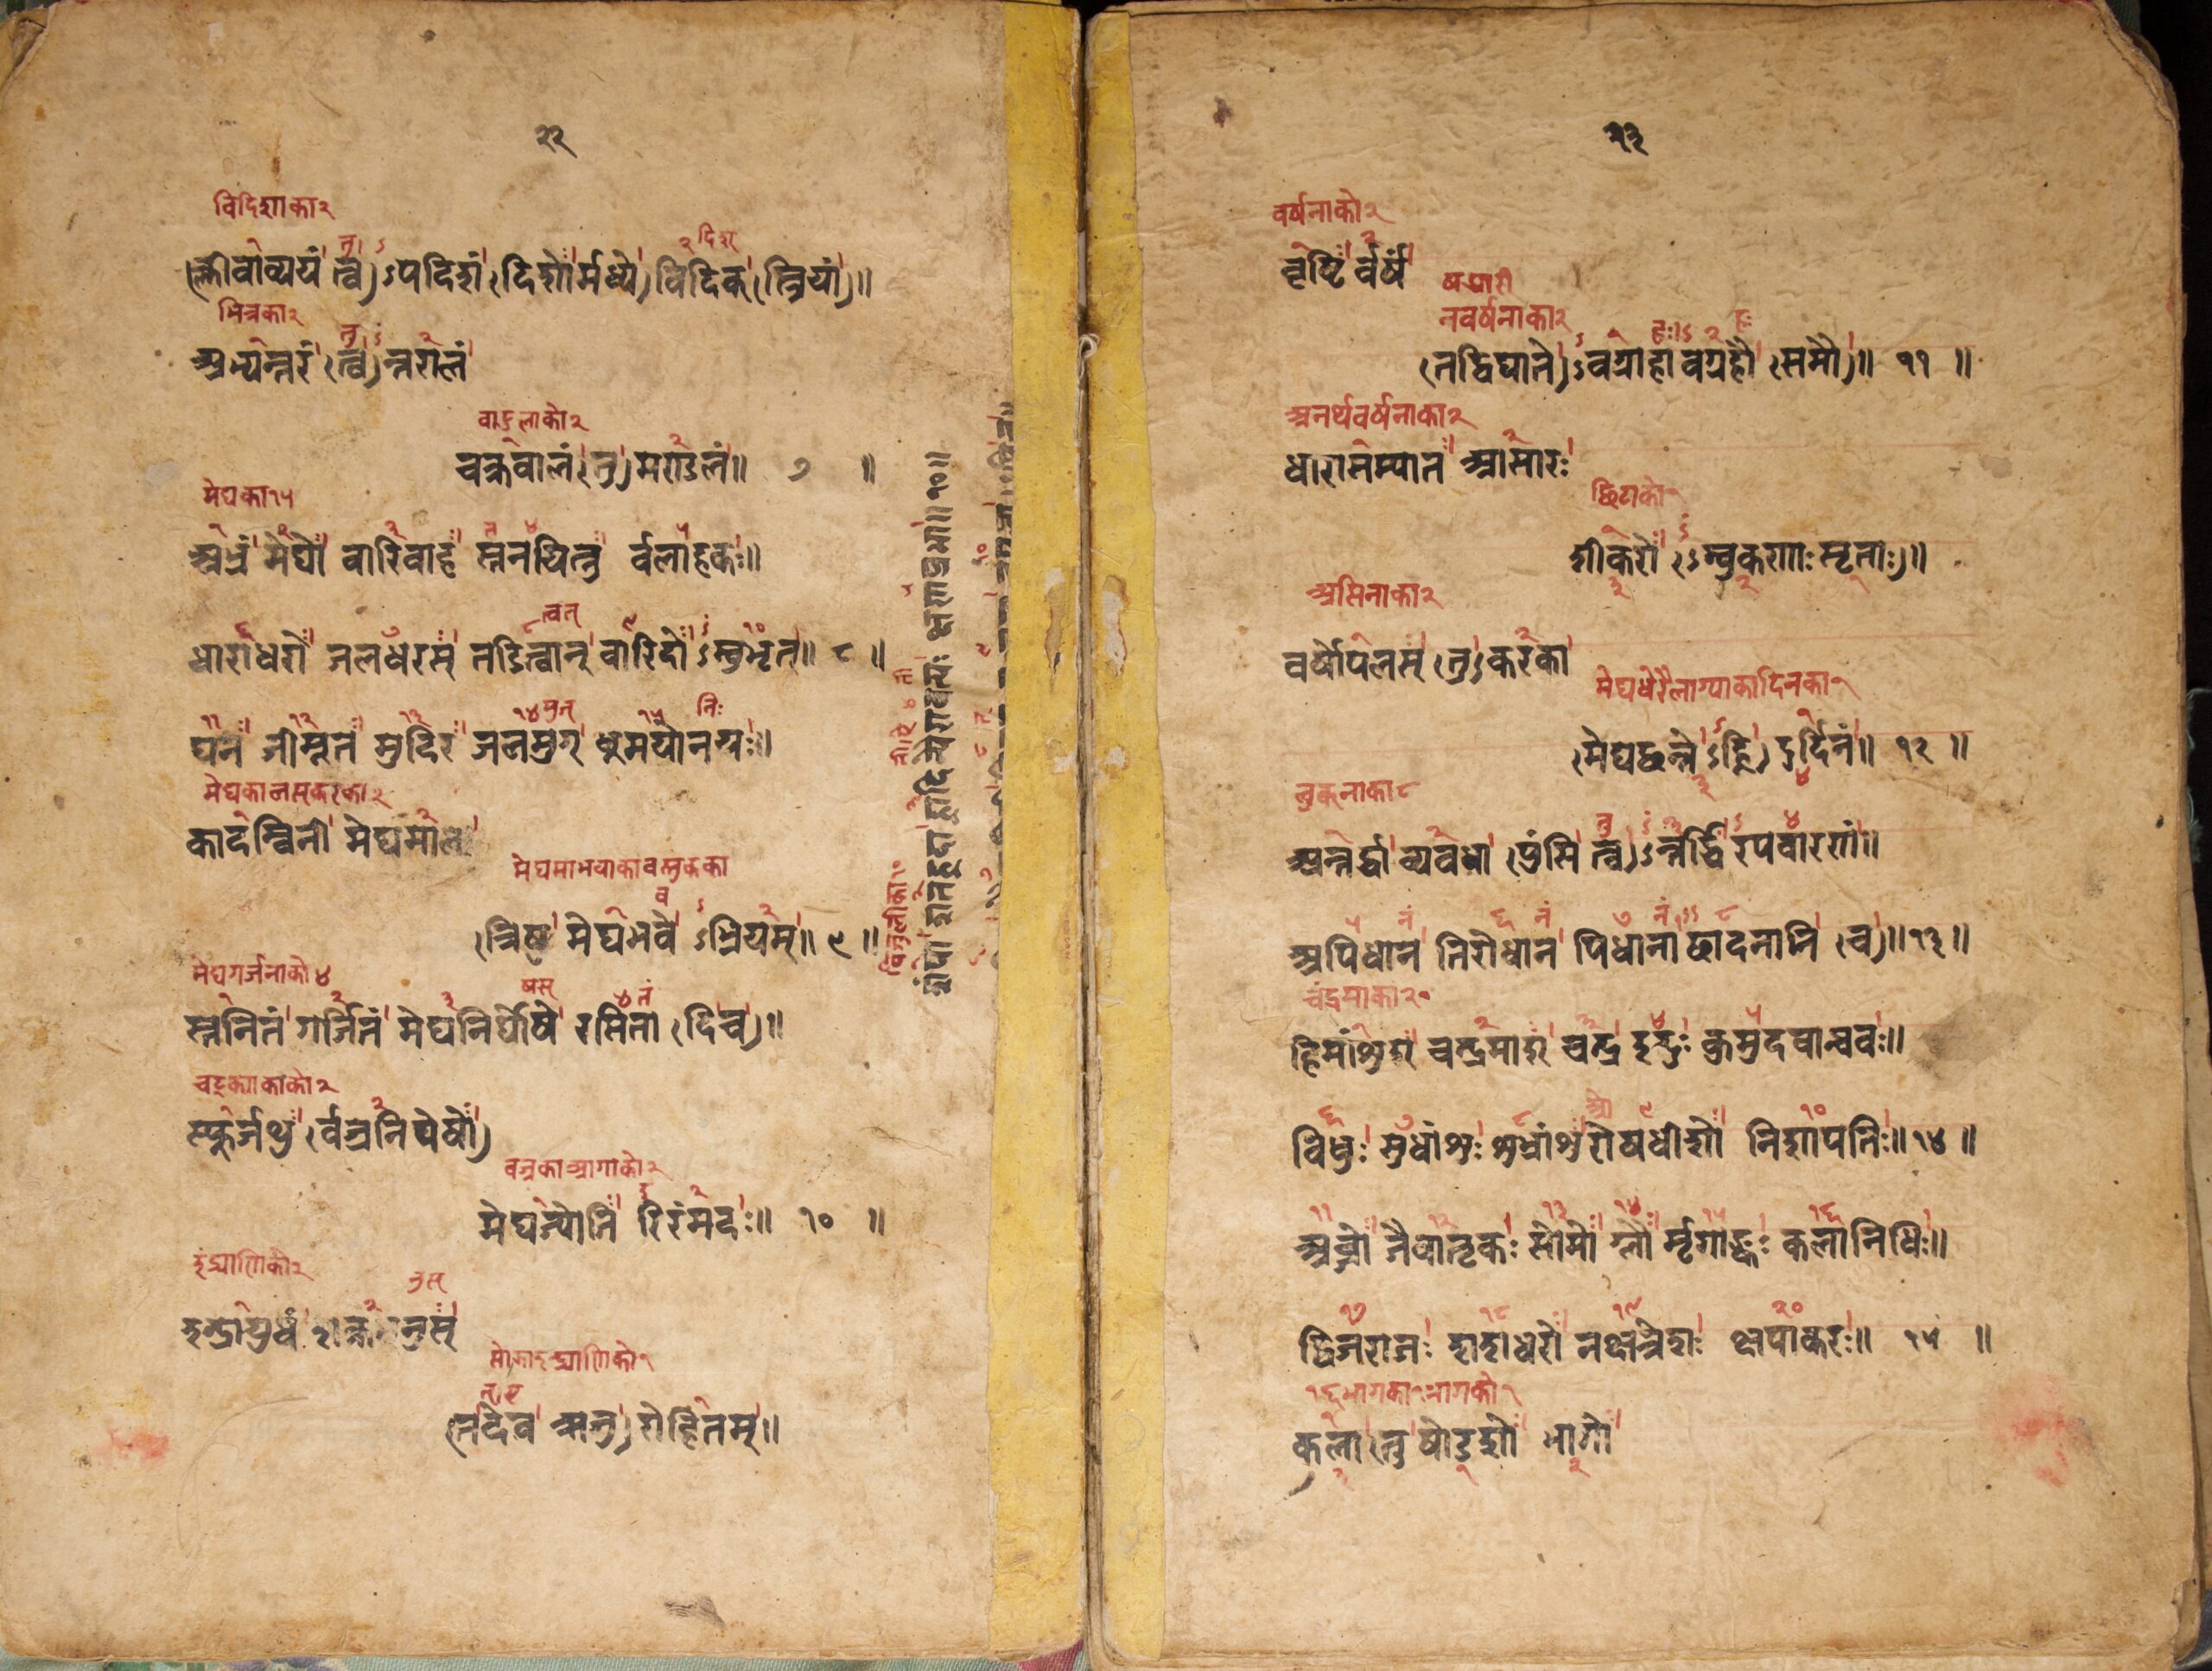 २२
विदिशाका२
(क्लीवाव्ययं त्व)ऽपदिशं (दिशोर्मध्ये) विदिक् (स्त्रियां)॥
भित्रका२
अभ्यन्तरं (त्व)न्तरालं
वाडुलाको२
चक्रवालं (तु) मण्डलं॥ ७ ॥
मेघका१५
अभ्रं मेघो वारिवाह स्तनयित्नु र्वलाहकः॥
धाराधरो जलधरस् तडित्वान् वारिदो ऽम्बुभृत्॥ ८ ॥
घन जीमूत मुदिर जलमुग् धूमयोनयः॥
कादम्विनी मेघमाला
(त्रिषु मेघभवे ऽभ्रियम्॥ ९ ॥
मेघगर्जनाको४
स्तनितं गर्जितं मेघनिर्घोषे रसिता (दि च)॥
स्फूर्जथु (र्वज्रनिर्घोषो)
वज्रका आगाको२
मेघज्योति रिरंमदः॥ १० ॥
इन्द्रायुधं शक्रधनुस्
(तदेव ऋजु) रोहितम्॥
२३
वर्षनाको२
वृष्टि र्वर्षं
नवर्षनाका२
(तद्विघाते)ऽवग्राहावग्रहौ (समौ)॥ ११ ॥
अनर्थवर्षनाका२
धारासम्पात आसारः
छिटाको१
शीकरो (ऽम्बुकणाः स्मृताः)॥
असिनाका२
वर्षोपलस् (तु) करका
(मेघछन्ने ऽह्नि) दुर्दिनं॥ १२ ॥
लुकनाका८
अन्तर्द्धा व्यवधा (पुंसि त्व)ऽन्तर्द्धि रपवारणं॥
अपिधान तिरोधान पिधाना छादनानि (च)॥१३॥
चंद्रमाका२०
हिमांशुश् चन्द्रमाश् चन्द्र इन्दुः कुमुदवान्धवः॥
विधुः सुधांशुः शुभ्रांशु रोषधीशो निशापतिः॥१४॥
अब्जो जैवातृकः सोमो ग्लौ र्मृगाङ्कः कलानिधिः॥
द्विजराजः शशधरो नक्षत्रेशः क्षपाकरः॥ १५ ॥
१६भागका१भागको१
कला (तु षोडशो भागो